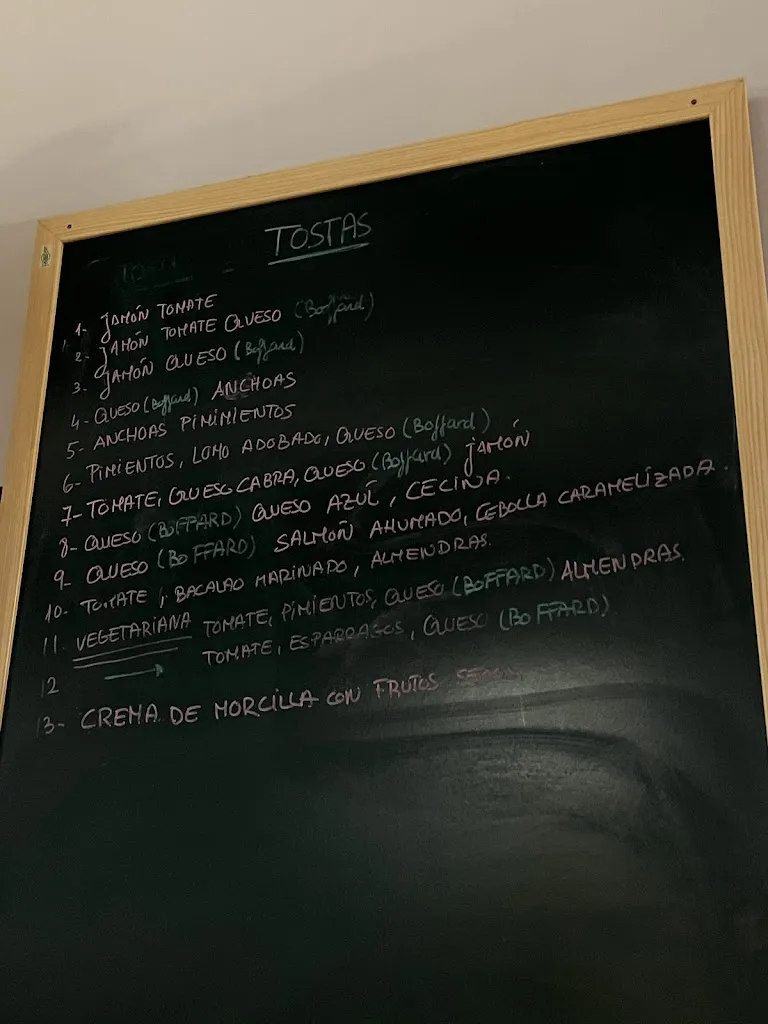 TOSTAS
1- JAMÓN TOMATE
2- JAMÓN TOMATE QUESO (Boffard)
3- JAMÓN QUESO (Boffard)
4- QUESO (Boffard) ANCHOAS
5- ANCHOAS PIMIMIENTOS
6- PIMIENTOS, LOMO ADOBADO, QUESO (Boffard)
7- TOMATE, QUESO CABRA, QUESO (Boffard) JAMÓN
8- QUESO (BOFFARD) QUESO AZUL, CECINA.
9- QUESO (BOFFARD) SALMOÑ AHUMADO, CEBOLLA CARAMELIZADA.
10- TOMATE, BACALAO MARINADO, ALMENDRAS.
11. VEGETARIANA TOMATE, PIMIENTOS, QUESO (BOFFARD) ALMENDRAS.
12 → TOMATE, ESPARRAGOS, QUESO (BOFFARD)
13- CREMA DE MORCILLA CON FRUTOS